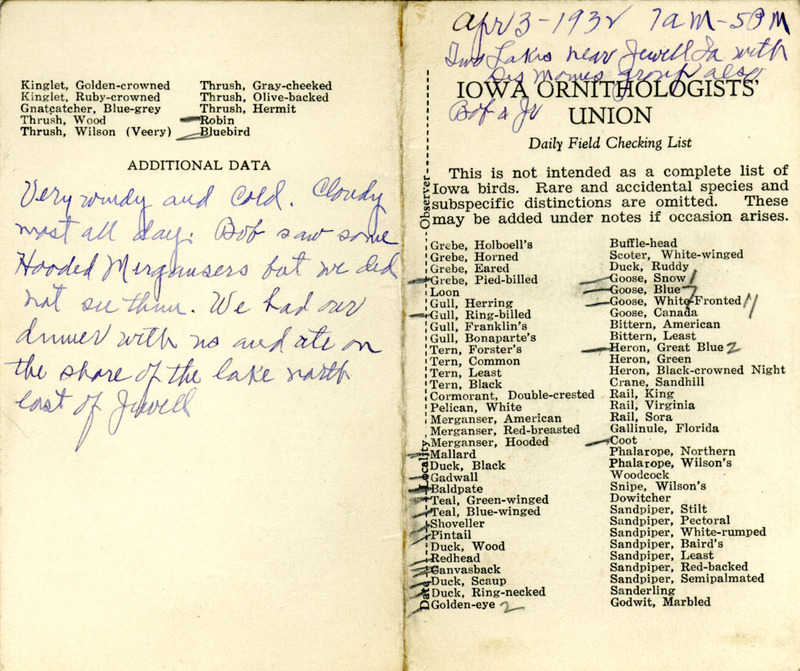 Kinglet, Golden-crowned
Kinglet, Ruby-crowned
Gnatcatcher, Blue-grey
Thrush, Wood
Thrush, Wilson (Veery)
Thrush, Gray-cheeked
Thrush, Olive-backed
Thrush, Hermit
Robin
Bluebird
ADDITIONAL DATA
Very windy and cold. Cloudy
most all day. Bob saw some
Hooded Mergansers but we did
not see them. We had our
dinner with us and ate on
the shore of the lake north
east of Jewell
Apr 3-1932 7am-5PM
Two Lakes near Jewell Ia with
Des Moines group also
Bob & Jr
IOWA ORNITHOLOGISTS'
UNION
Daily Field Checking List
This is not intended as a complete list of
Iowa birds. Rare and accidental species and
subspecific distinctions are omitted. These
may be added under notes if occasion arises.
Observer
Locality
Date
Grebe, Holboell's
Grebe, Horned
Grebe, Eared
Grebe, Pied-billed
Loon
Gull, Herring
Gull, Ring-billed
Gull, Franklin's
Gull, Bonaparte's
Tern, Forster's
Tern, Common
Tern, Least
Tern, Black
Cormorant, Double-crested
Pelican, White
Merganser, American
Merganser, Red-breasted
Merganser, Hooded
Mallard
Duck, Black
Gadwall
Baldpate
Teal, Green-winged
Teal, Blue-winged
Shoveller
Pintail
Duck, Wood
Redhead
Canvasback
Duck, Scaup
Duck, Ring-necked
Golden-eye 2
Buffle-head
Scoter, White-winged
Duck, Ruddy
Goose, Snow 1
Goose, Blue 7
Goose, White-Fronted 11
Goose, Canada
Bittern, American
Bittern, Least
Heron, Great Blue 2
Heron, Green
Heron, Black-crowned Night
Crane, Sandhill
Rail, King
Rail, Virginia
Rail, Sora
Gallinule, Florida
Coot
Phalarope, Northern
Phalarope, Wilson's
Woodcock
Snipe, Wilson's
Dowitcher
Sandpiper, Stilt
Sandpiper, Pectoral
Sandpiper, White-rumped
Sandpiper, Baird's
Sandpiper, Least
Sandpiper, Red-backed
Sandpiper, Semipalmated
Sanderling
Godwit, Marbled